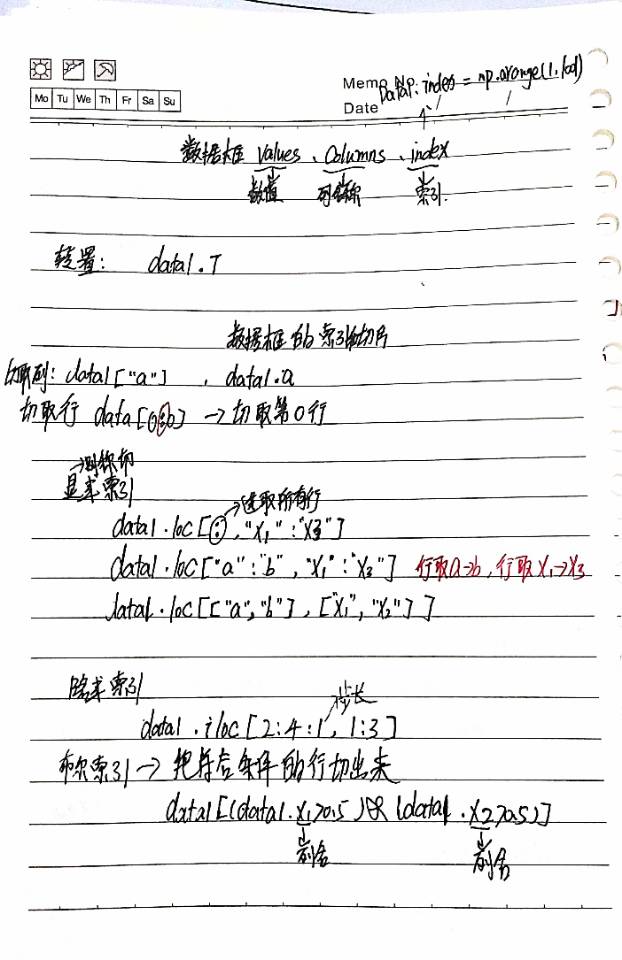 Mo Tu We Th Fr Sa Su
Memo No.
data1.index = np.arange(1,101)
Date
数据框 values、Columns、index
数值 列名称 索引
转置: data1.T
数据框的索引和切片
切取列: data1["a"] , data1.a
切取行 data[0:0] → 切取第0行
→ 名称切
显式索引
→ 选取所有行
data1.loc[:,"X1":"X3"]
data1.loc["a":"b","X1":"X3"] 行取a→b,行取X1→X3
data1.loc[["a","b"],["X1","X2"]]
隐式索引
步长
data1.iloc[2:4:1,1:3]
布尔索引 → 把符合条件的行切出来
data1[(data1.X1>0.5)&(data1.X2>0.5)]
列名 列名